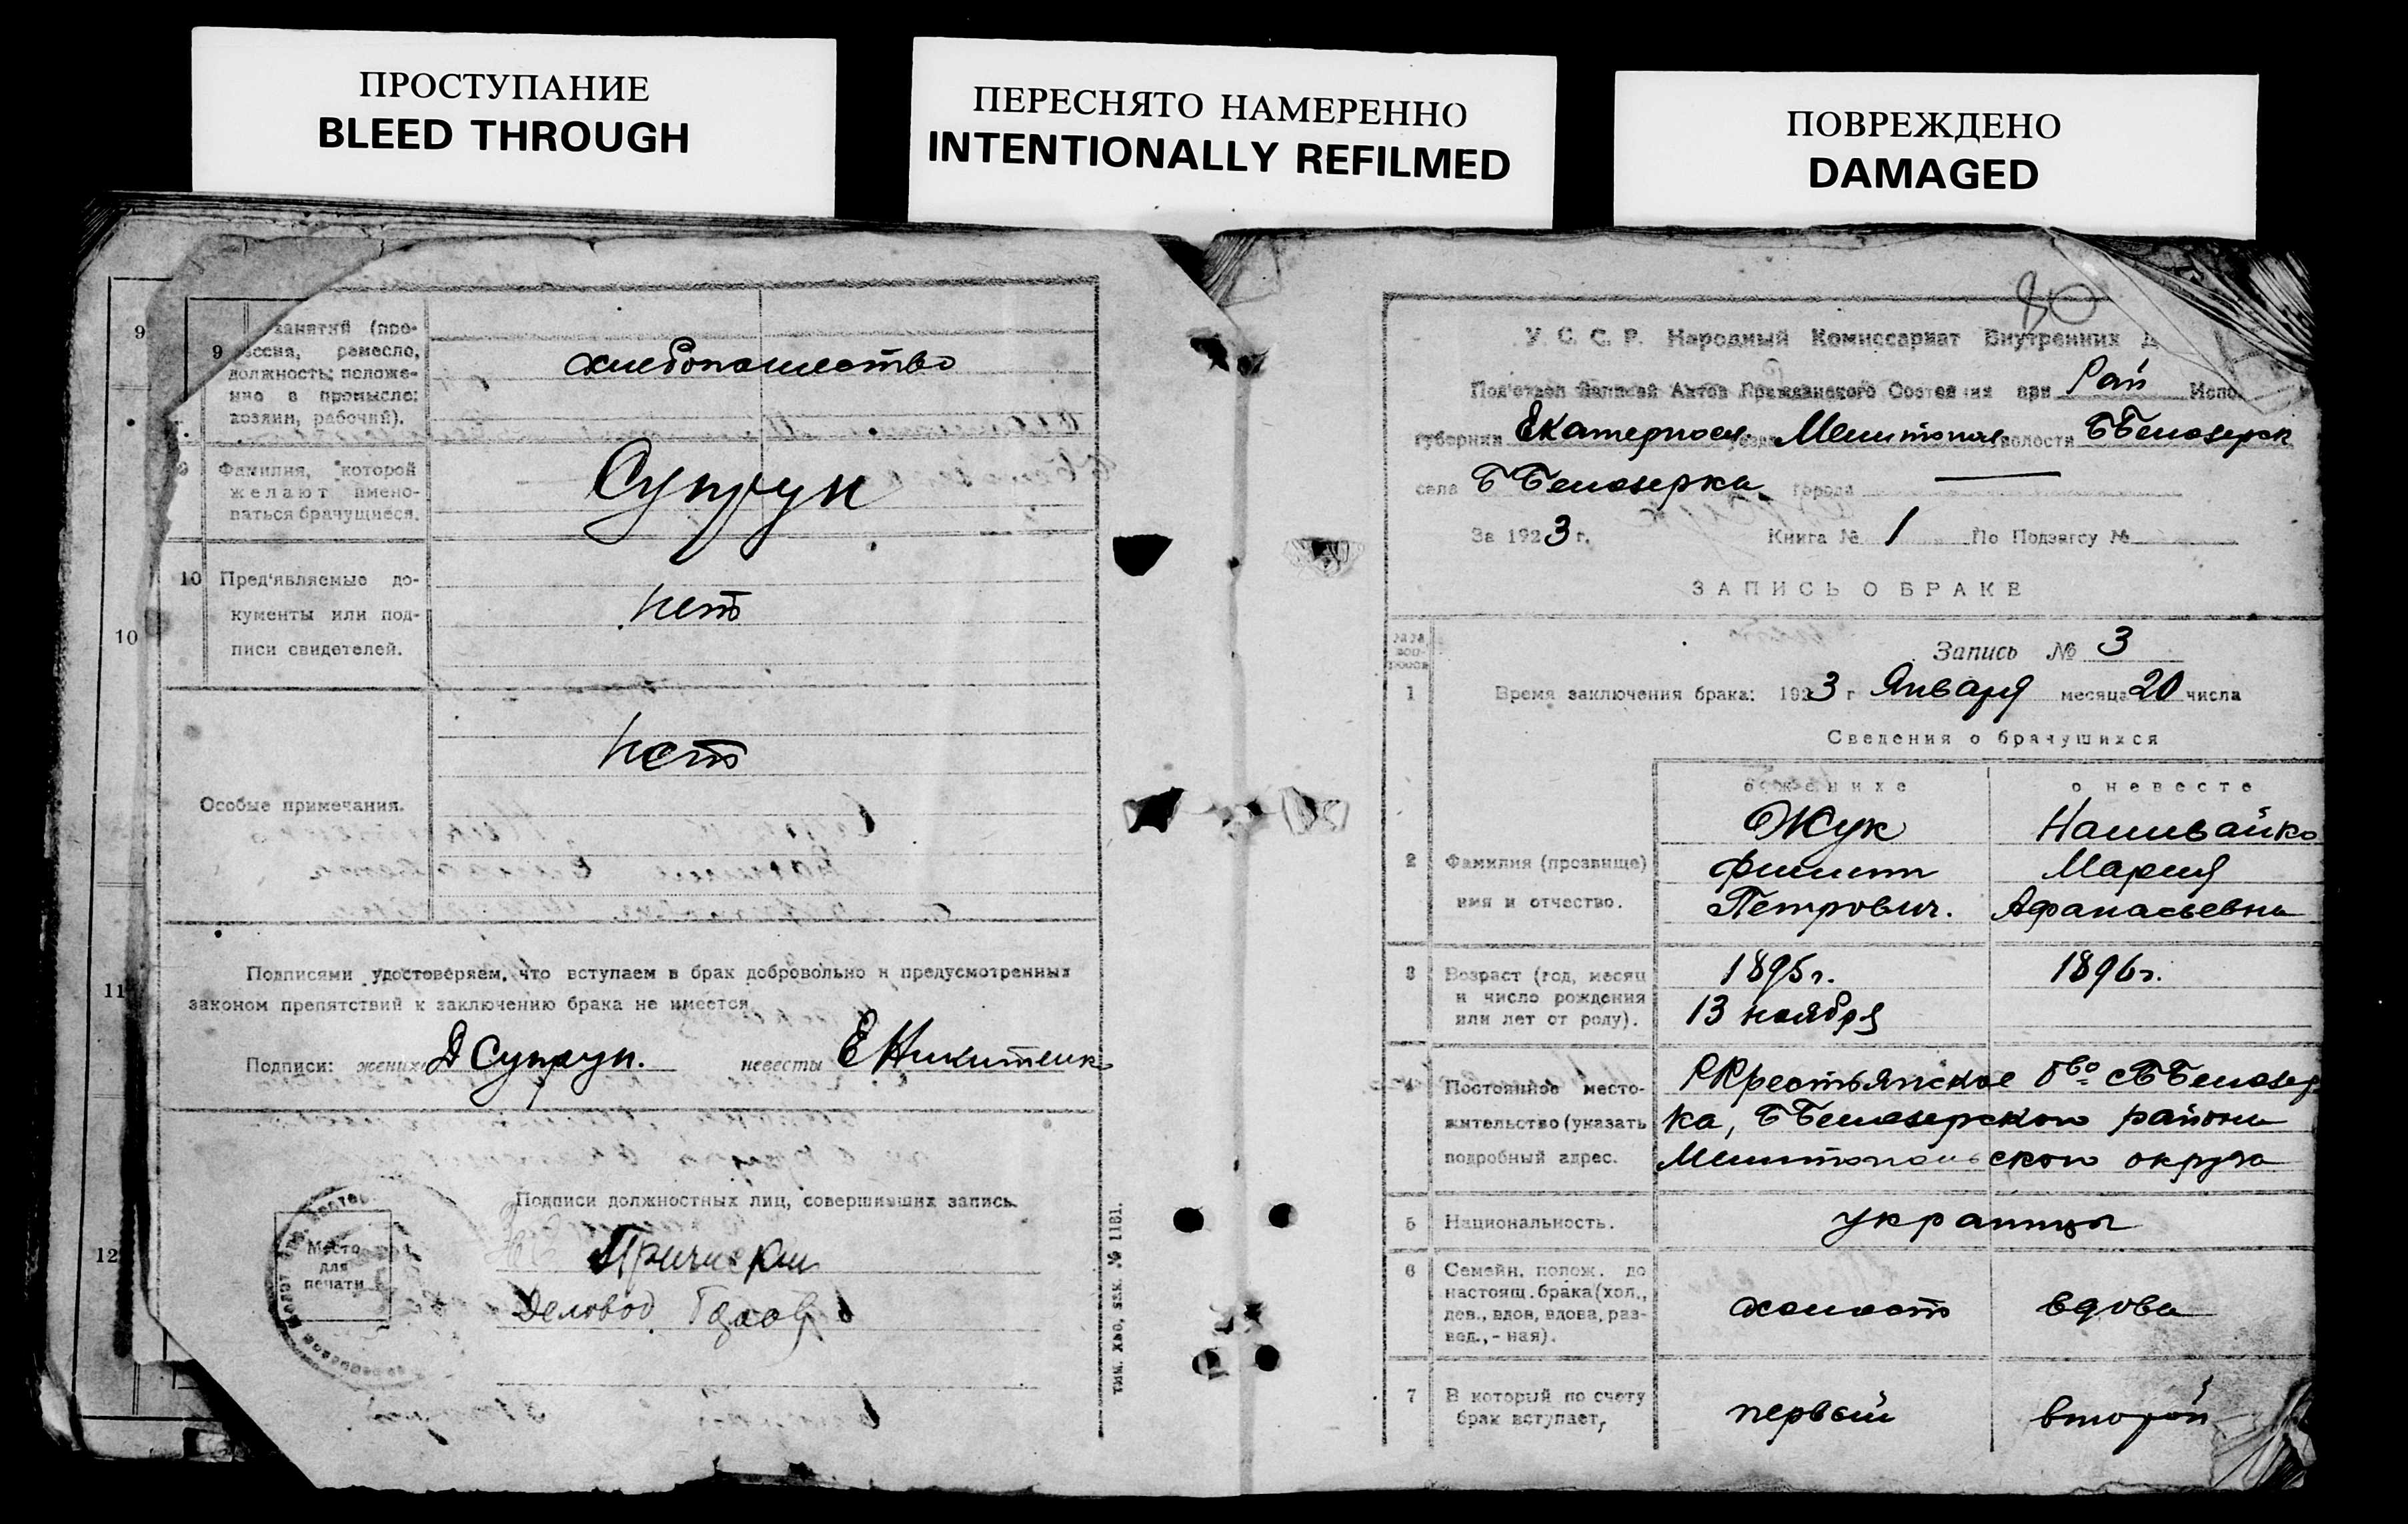 ПРОСТУПАНИЕ
BLEED THROUGH
ПЕРЕСНЯТО НАМЕРЕННО
INTENTIONALLY REFILMED
ПОВРЕЖДЕНО
DAMAGED
9
10
11
12
9
занятий (про-
ессия, ремесло,
должность; положе-
ние в промысле:
хозяин, рабочий).
хлебопашество
Фамилия, которой
желают имено-
ваться брачущиеся.
Супрун
10
Пред'являемые до-
кументы или под-
писи свидетелей.
нет
Особые примечания.
Нет
Подписями удостоверяем, что вступаем в брак добровольно и предусмотренных
законом препятствий к заключению брака не имеется
Подписи: жениха Д Супрун. невесты Е Никитенко
Подписи должностных лиц, совершивших запись.
Место
для
печати
Деловод
тип. Хво, зак. № 1181.
80
У. С. С. Р. Народный Комиссариат Внутренних Д
Под'отдел Записей Актов Гражданского Состояния при Рай Испо
губернии Екатериносл. уезда Мелитопол. волости ББелозерск
села ББелозерка города —
За 1923 г. Книга № 1 По Подзагсу №
ЗАПИСЬ О БРАКЕ
Запись № 3
1 Время заключения брака: 1923 г Января месяца 20 числа
Сведения о брачущихся
о женихе о невесте
2 Фамилия (прозвище)
имя и отчество.
Жук
Филипп
Петрович.
Наливайко
Мария
Афанасьевна
3 Возраст (год, месяц
и число рождения
или лет от роду).
1895 г.
13 ноября
1896 г.
4 Постоянное место-
жительство (указать
подробный адрес.
Крестьянское Обво с ББелозер
ка, ББелозерского района
Мелитопольского округа
5 Национальность.
украинцы
6 Семейн. полож. до
настоящ. брака (хол.,
дев., вдов, вдова, раз-
вед., - ная).
холост вдова
7 В который по счету
брак вступает,
первый второй